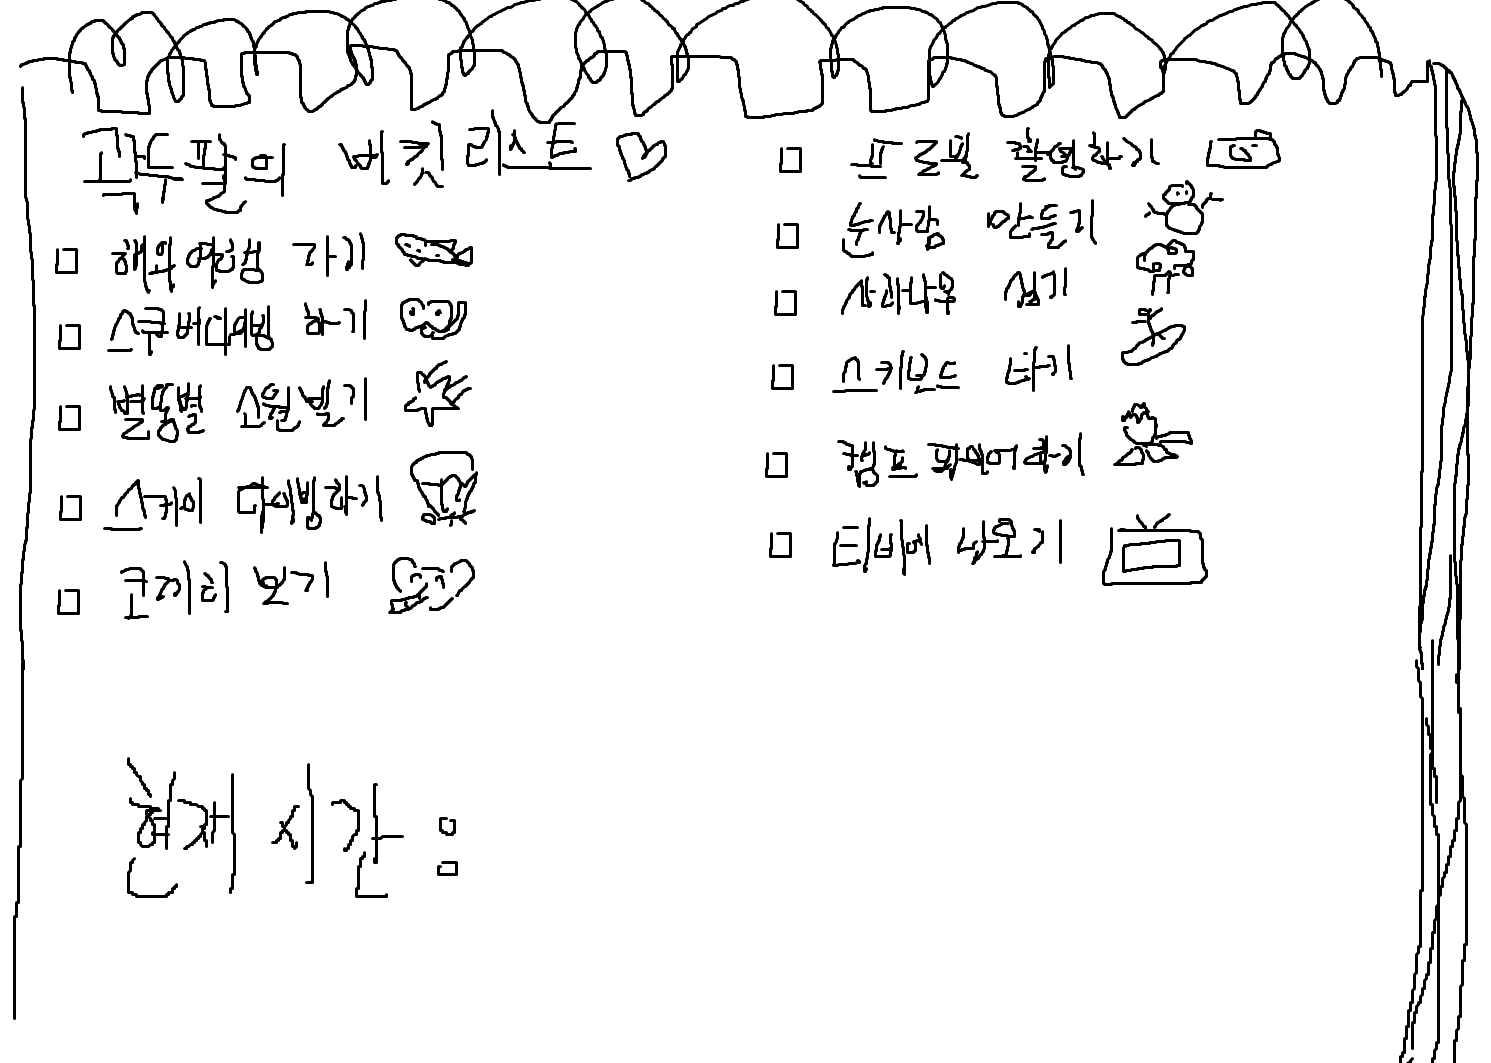 곽두팔의 버킷리스트
해외여행 가기
스쿠버다이빙 하기
별똥별 소원빌기
스카이 다이빙하기
코끼리 보기
프로필 촬영하기
눈사람 만들기
사과나무 심기
스키보드 타기
캠프 파이어하기
티비에 나오기
현재 시간 :